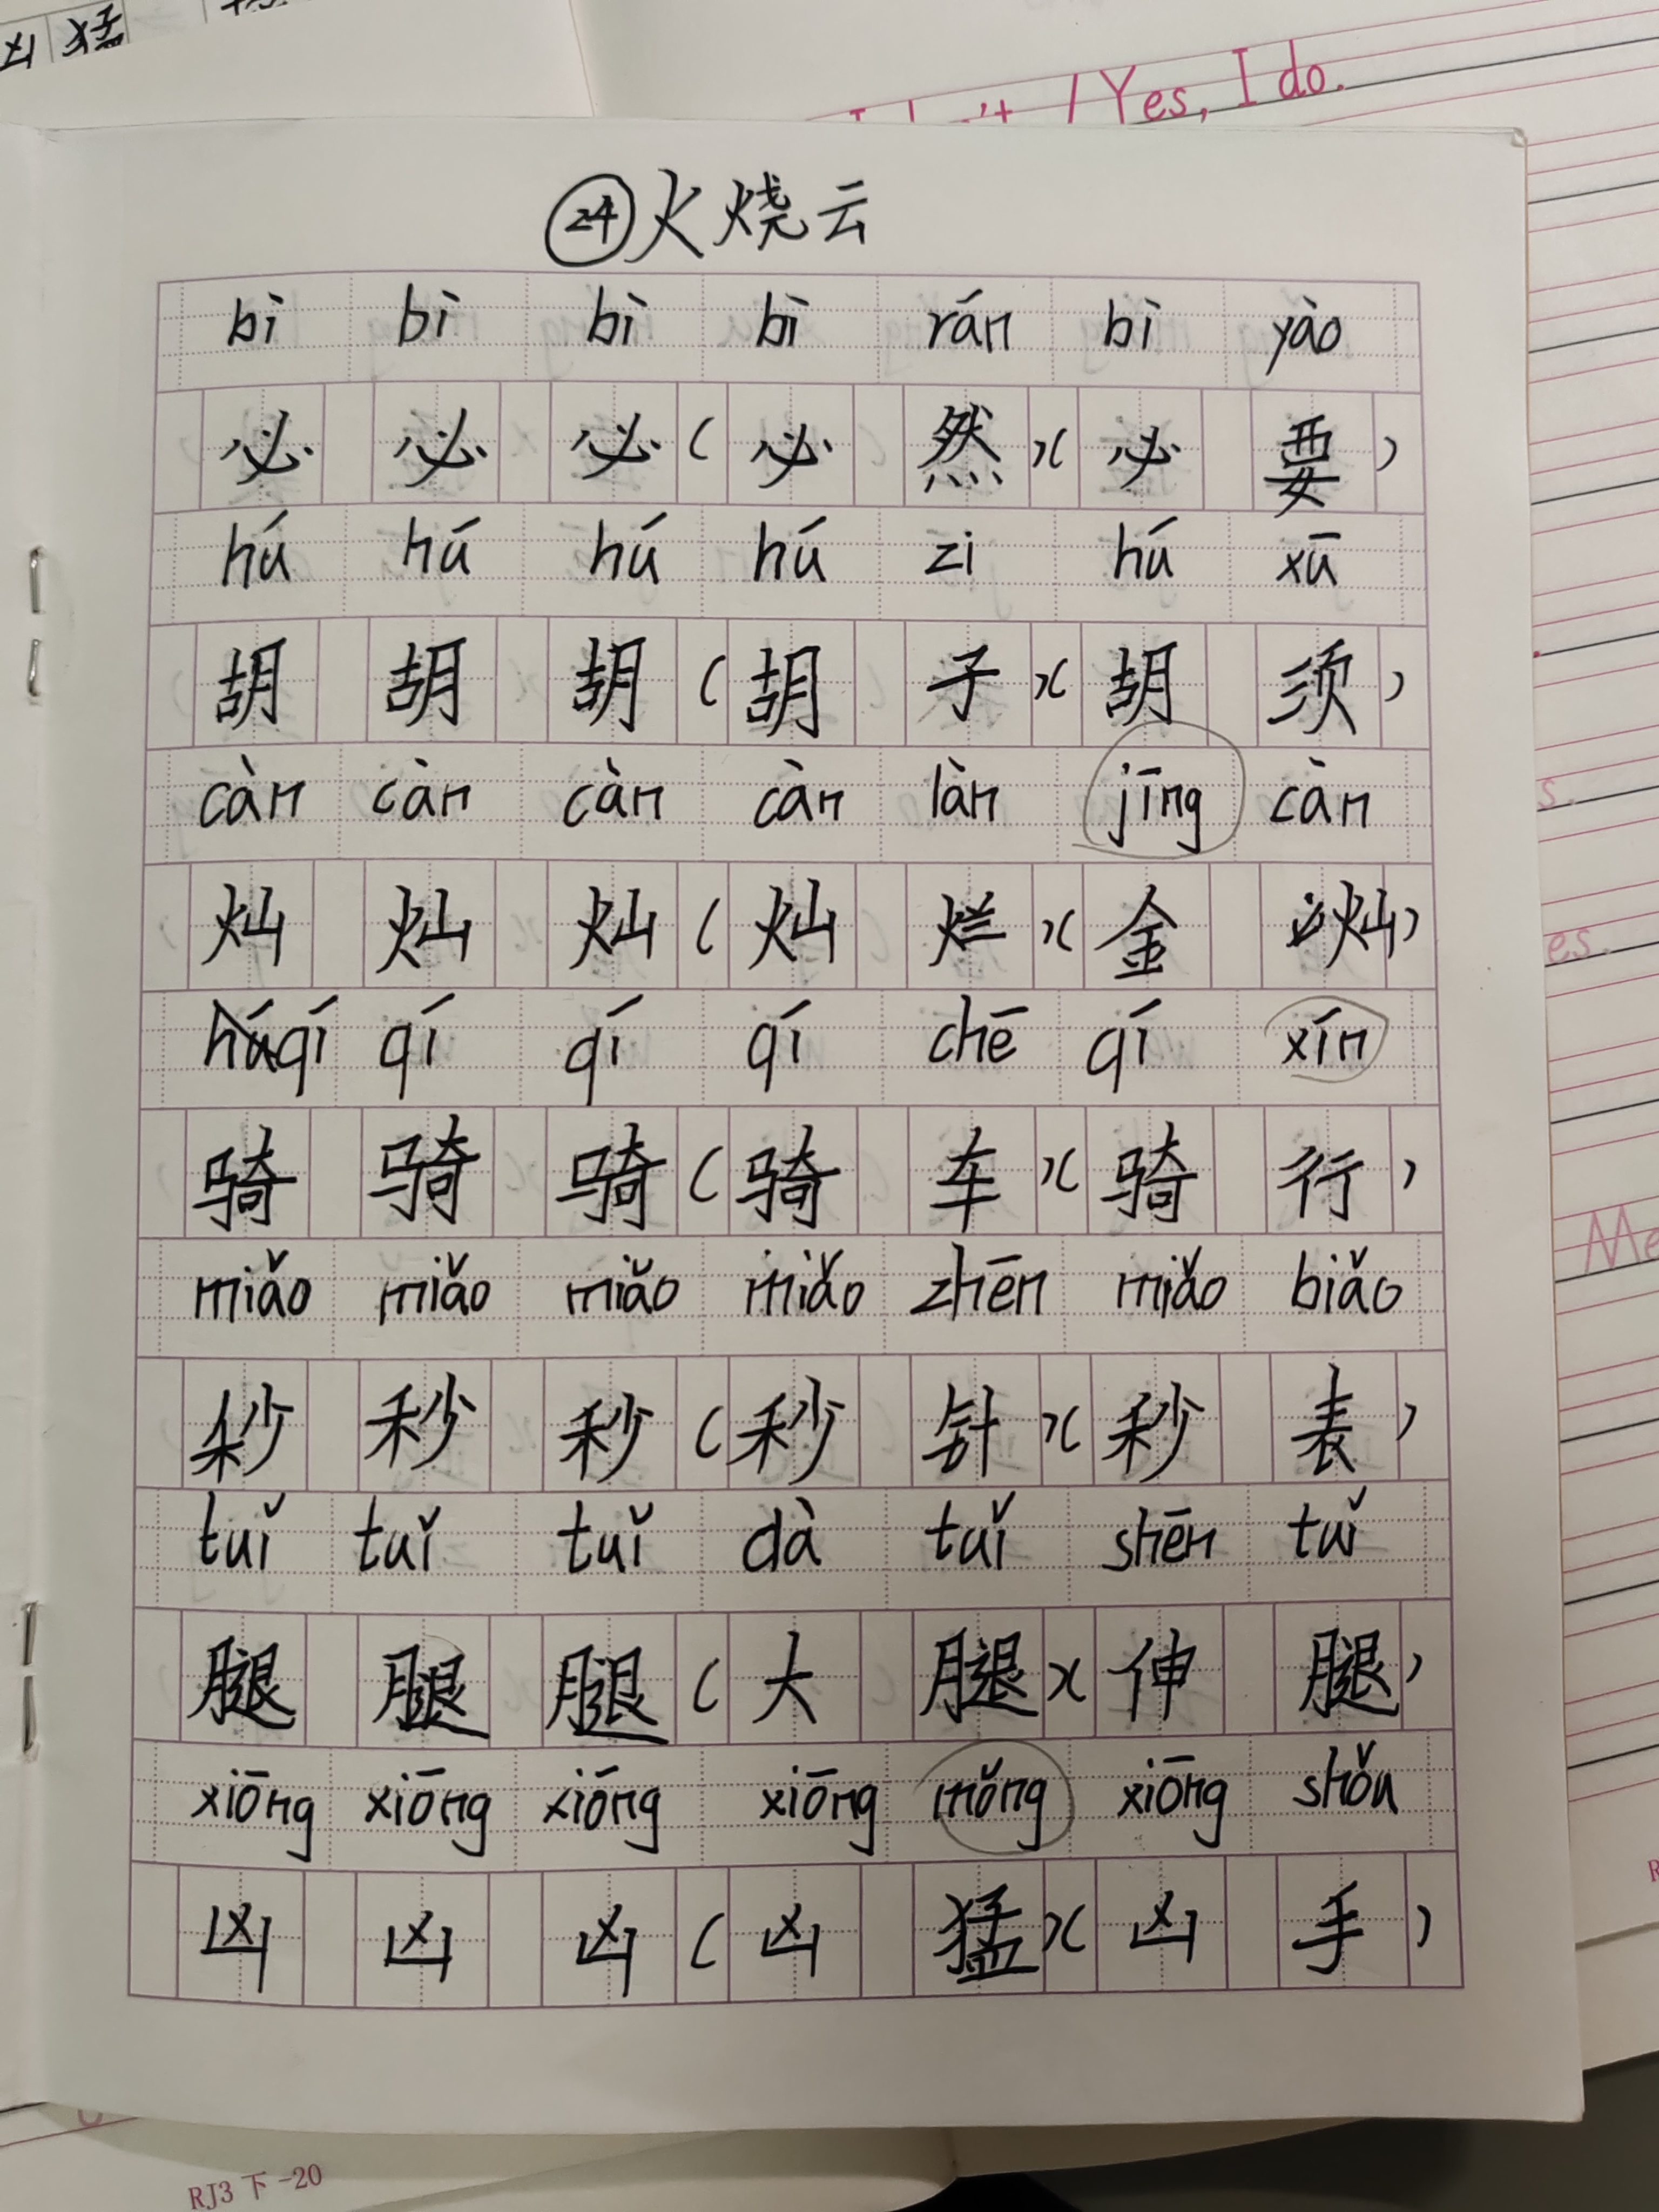 凶 猛
/ Yes, I do.
24 火烧云
bì bì bì bì rán bì yào
必 必 必 ( 必 然 )( 必 要 )
hú hú hú hú zi hú xū
胡 胡 胡 ( 胡 子 )( 胡 须 )
càn càn càn càn làn jīng càn
灿 灿 灿 ( 灿 烂 )( 金 灿 )
qí qí qí qí chē qí xín
骑 骑 骑 ( 骑 车 )( 骑 行 )
miǎo miǎo miǎo miǎo zhēn miǎo biǎo
秒 秒 秒 ( 秒 针 )( 秒 表 )
tuǐ tuǐ tuǐ dà tuǐ shēn tuǐ
腿 腿 腿 ( 大 腿 )( 伸 腿 )
xiōng xiōng xiōng xiōng mǒng xiōng shǒu
凶 凶 凶 ( 凶 猛 )( 凶 手 )
s.
es.
Me
RJ3下-20